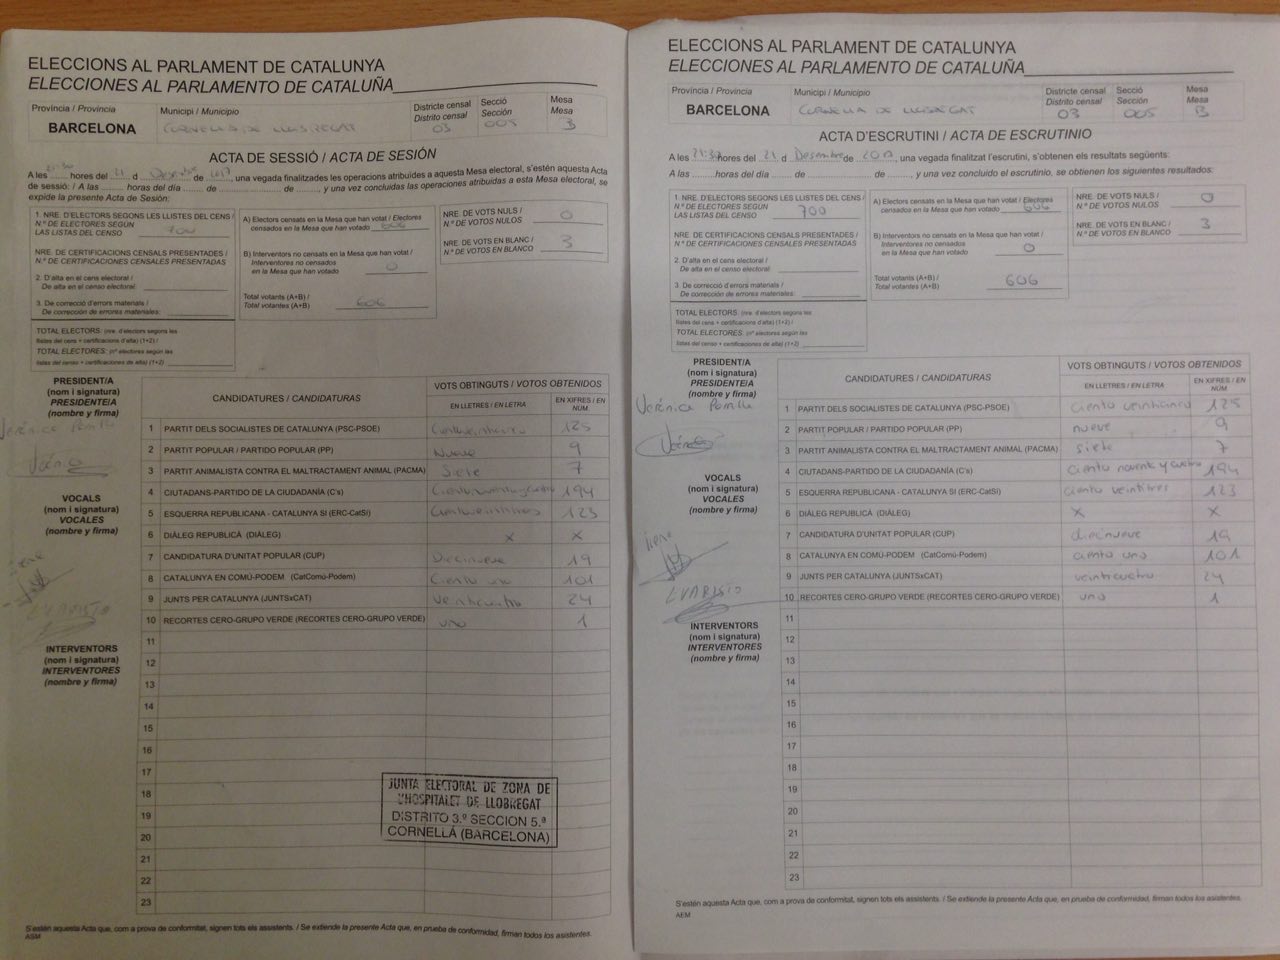 ELECCIONS AL PARLAMENT DE CATALUNYA
ELECCIONES AL PARLAMENTO DE CATALUÑA
Província / Provincia
BARCELONA
Municipi / Municipio
CORNELLA DE LLOBREGAT
Districte censal
Distrito censal
03
Secció
Sección
005
Mesa
Mesa
B
ACTA DE SESSIÓ / ACTA DE SESIÓN
A les 21:30 hores del 21 d Desembre de 2017, una vegada finalitzades les operacions atribuïdes a aquesta Mesa electoral, s'estén aquesta Acta
de sessió: / A las ......... horas del día ......... de ............... de ........., y una vez concluidas las operaciones atribuidas a esta Mesa electoral, se
expide la presente Acta de Sesión:
1. NRE. D'ELECTORS SEGONS LES LLISTES DEL CENS /
N.º DE ELECTORES SEGÚN
LAS LISTAS DEL CENSO 700
NRE. DE CERTIFICACIONS CENSALS PRESENTADES /
N.º DE CERTIFICACIONES CENSALES PRESENTADAS
2. D'alta en el cens electoral /
De alta en el censo electoral
3. De correcció d'errors materials /
De corrección de errores materiales:
TOTAL ELECTORS: (nre. d'electors segons les
llistes del cens + certificacions d'alta) (1+2) /
TOTAL ELECTORES: (nº electores según las
listas del censo + certificaciones de alta) (1+2)
A) Electors censats en la Mesa que han votat / Electores
censados en la Mesa que han votado 606
B) Interventors no censats en la Mesa que han votat /
Interventores no censados
en la Mesa que han votado 0
Total votants (A+B) /
Total votantes (A+B) 606
NRE. DE VOTS NULS /
N.º DE VOTOS NULOS 0
NRE. DE VOTS EN BLANC /
N.º DE VOTOS EN BLANCO 3
PRESIDENT/A
(nom i signatura)
PRESIDENTE/A
(nombre y firma)
Verónica
VOCALS
(nom i signatura)
VOCALES
(nombre y firma)
Irene
EVARISTO
INTERVENTORS
(nom i signatura)
INTERVENTORES
(nombre y firma)
CANDIDATURES / CANDIDATURAS
VOTS OBTINGUTS / VOTOS OBTENIDOS
EN LLETRES / EN LETRA
EN XIFRES / EN NÚM.
1 PARTIT DELS SOCIALISTES DE CATALUNYA (PSC-PSOE) 125
2 PARTIT POPULAR / PARTIDO POPULAR (PP) Nueve 9
3 PARTIT ANIMALISTA CONTRA EL MALTRACTAMENT ANIMAL (PACMA) Siete 7
4 CIUTADANS-PARTIDO DE LA CIUDADANÍA (C's) Cientonoventaycuatro 194
5 ESQUERRA REPUBLICANA - CATALUNYA SÍ (ERC-CatSí) Cientoveintitres 123
6 DIÀLEG REPUBLICÀ (DIÀLEG) X X
7 CANDIDATURA D'UNITAT POPULAR (CUP) Diecinueve 19
8 CATALUNYA EN COMÚ-PODEM (CatComú-Podem) Ciento uno 101
9 JUNTS PER CATALUNYA (JUNTSxCAT) Veinticuatro 24
10 RECORTES CERO-GRUPO VERDE (RECORTES CERO-GRUPO VERDE) uno 1
11
12
13
14
15
16
17
18
19
20
21
22
23
JUNTA ELECTORAL DE ZONA DE
L'HOSPITALET DE LLOBREGAT
DISTRITO 3.º SECCION 5.ª
CORNELLÁ (BARCELONA)
S'estén aquesta Acta que, com a prova de conformitat, signen tots els assistents. / Se extiende la presente Acta que, en prueba de conformidad, firman todos los asistentes.
ASM
ELECCIONS AL PARLAMENT DE CATALUNYA
ELECCIONES AL PARLAMENTO DE CATALUÑA
Província / Provincia
BARCELONA
Municipi / Municipio
CORNELLA DE LLOBREGAT
Districte censal
Distrito censal
03
Secció
Sección
005
Mesa
Mesa
B
ACTA D'ESCRUTINI / ACTA DE ESCRUTINIO
A les 21:30 hores del 21 d Desembre de 2017, una vegada finalitzat l'escrutini, s'obtenen els resultats següents:
A las ......... horas del día ......... de ............... de ........., y una vez concluido el escrutinio, se obtienen los siguientes resultados:
1. NRE. D'ELECTORS SEGONS LES LLISTES DEL CENS /
N.º DE ELECTORES SEGÚN
LAS LISTAS DEL CENSO 700
NRE. DE CERTIFICACIONS CENSALS PRESENTADES /
N.º DE CERTIFICACIONES CENSALES PRESENTADAS
2. D'alta en el cens electoral /
De alta en el censo electoral
3. De correcció d'errors materials /
De corrección de errores materiales:
TOTAL ELECTORS: (nre. d'electors segons les
llistes del cens + certificacions d'alta) (1+2) /
TOTAL ELECTORES: (nº electores según las
listas del censo + certificaciones de alta) (1+2)
A) Electors censats en la Mesa que han votat / Electores
censados en la Mesa que han votado 606
B) Interventors no censats en la Mesa que han votat /
Interventores no censados
en la Mesa que han votado 0
Total votants (A+B) /
Total votantes (A+B) 606
NRE. DE VOTS NULS /
N.º DE VOTOS NULOS 0
NRE. DE VOTS EN BLANC /
N.º DE VOTOS EN BLANCO 3
PRESIDENT/A
(nom i signatura)
PRESIDENTE/A
(nombre y firma)
Verónica
VOCALS
(nom i signatura)
VOCALES
(nombre y firma)
Irene
EVARISTO
INTERVENTORS
(nom i signatura)
INTERVENTORES
(nombre y firma)
CANDIDATURES / CANDIDATURAS
VOTS OBTINGUTS / VOTOS OBTENIDOS
EN LLETRES / EN LETRA
EN XIFRES / EN NÚM.
1 PARTIT DELS SOCIALISTES DE CATALUNYA (PSC-PSOE) ciento veinticinco 125
2 PARTIT POPULAR / PARTIDO POPULAR (PP) nueve 9
3 PARTIT ANIMALISTA CONTRA EL MALTRACTAMENT ANIMAL (PACMA) siete 7
4 CIUTADANS-PARTIDO DE LA CIUDADANÍA (C's) ciento noventa y cuatro 194
5 ESQUERRA REPUBLICANA - CATALUNYA SÍ (ERC-CatSí) ciento veintitres 123
6 DIÀLEG REPUBLICÀ (DIÀLEG) X X
7 CANDIDATURA D'UNITAT POPULAR (CUP) diecinueve 19
8 CATALUNYA EN COMÚ-PODEM (CatComú-Podem) ciento uno 101
9 JUNTS PER CATALUNYA (JUNTSxCAT) veinticuatro 24
10 RECORTES CERO-GRUPO VERDE (RECORTES CERO-GRUPO VERDE) uno 1
11
12
13
14
15
16
17
18
19
20
21
22
23
S'estén aquesta Acta que, com a prova de conformitat, signen tots els assistents. / Se extiende la presente Acta que, en prueba de conformidad, firman todos los asistentes.
AEM